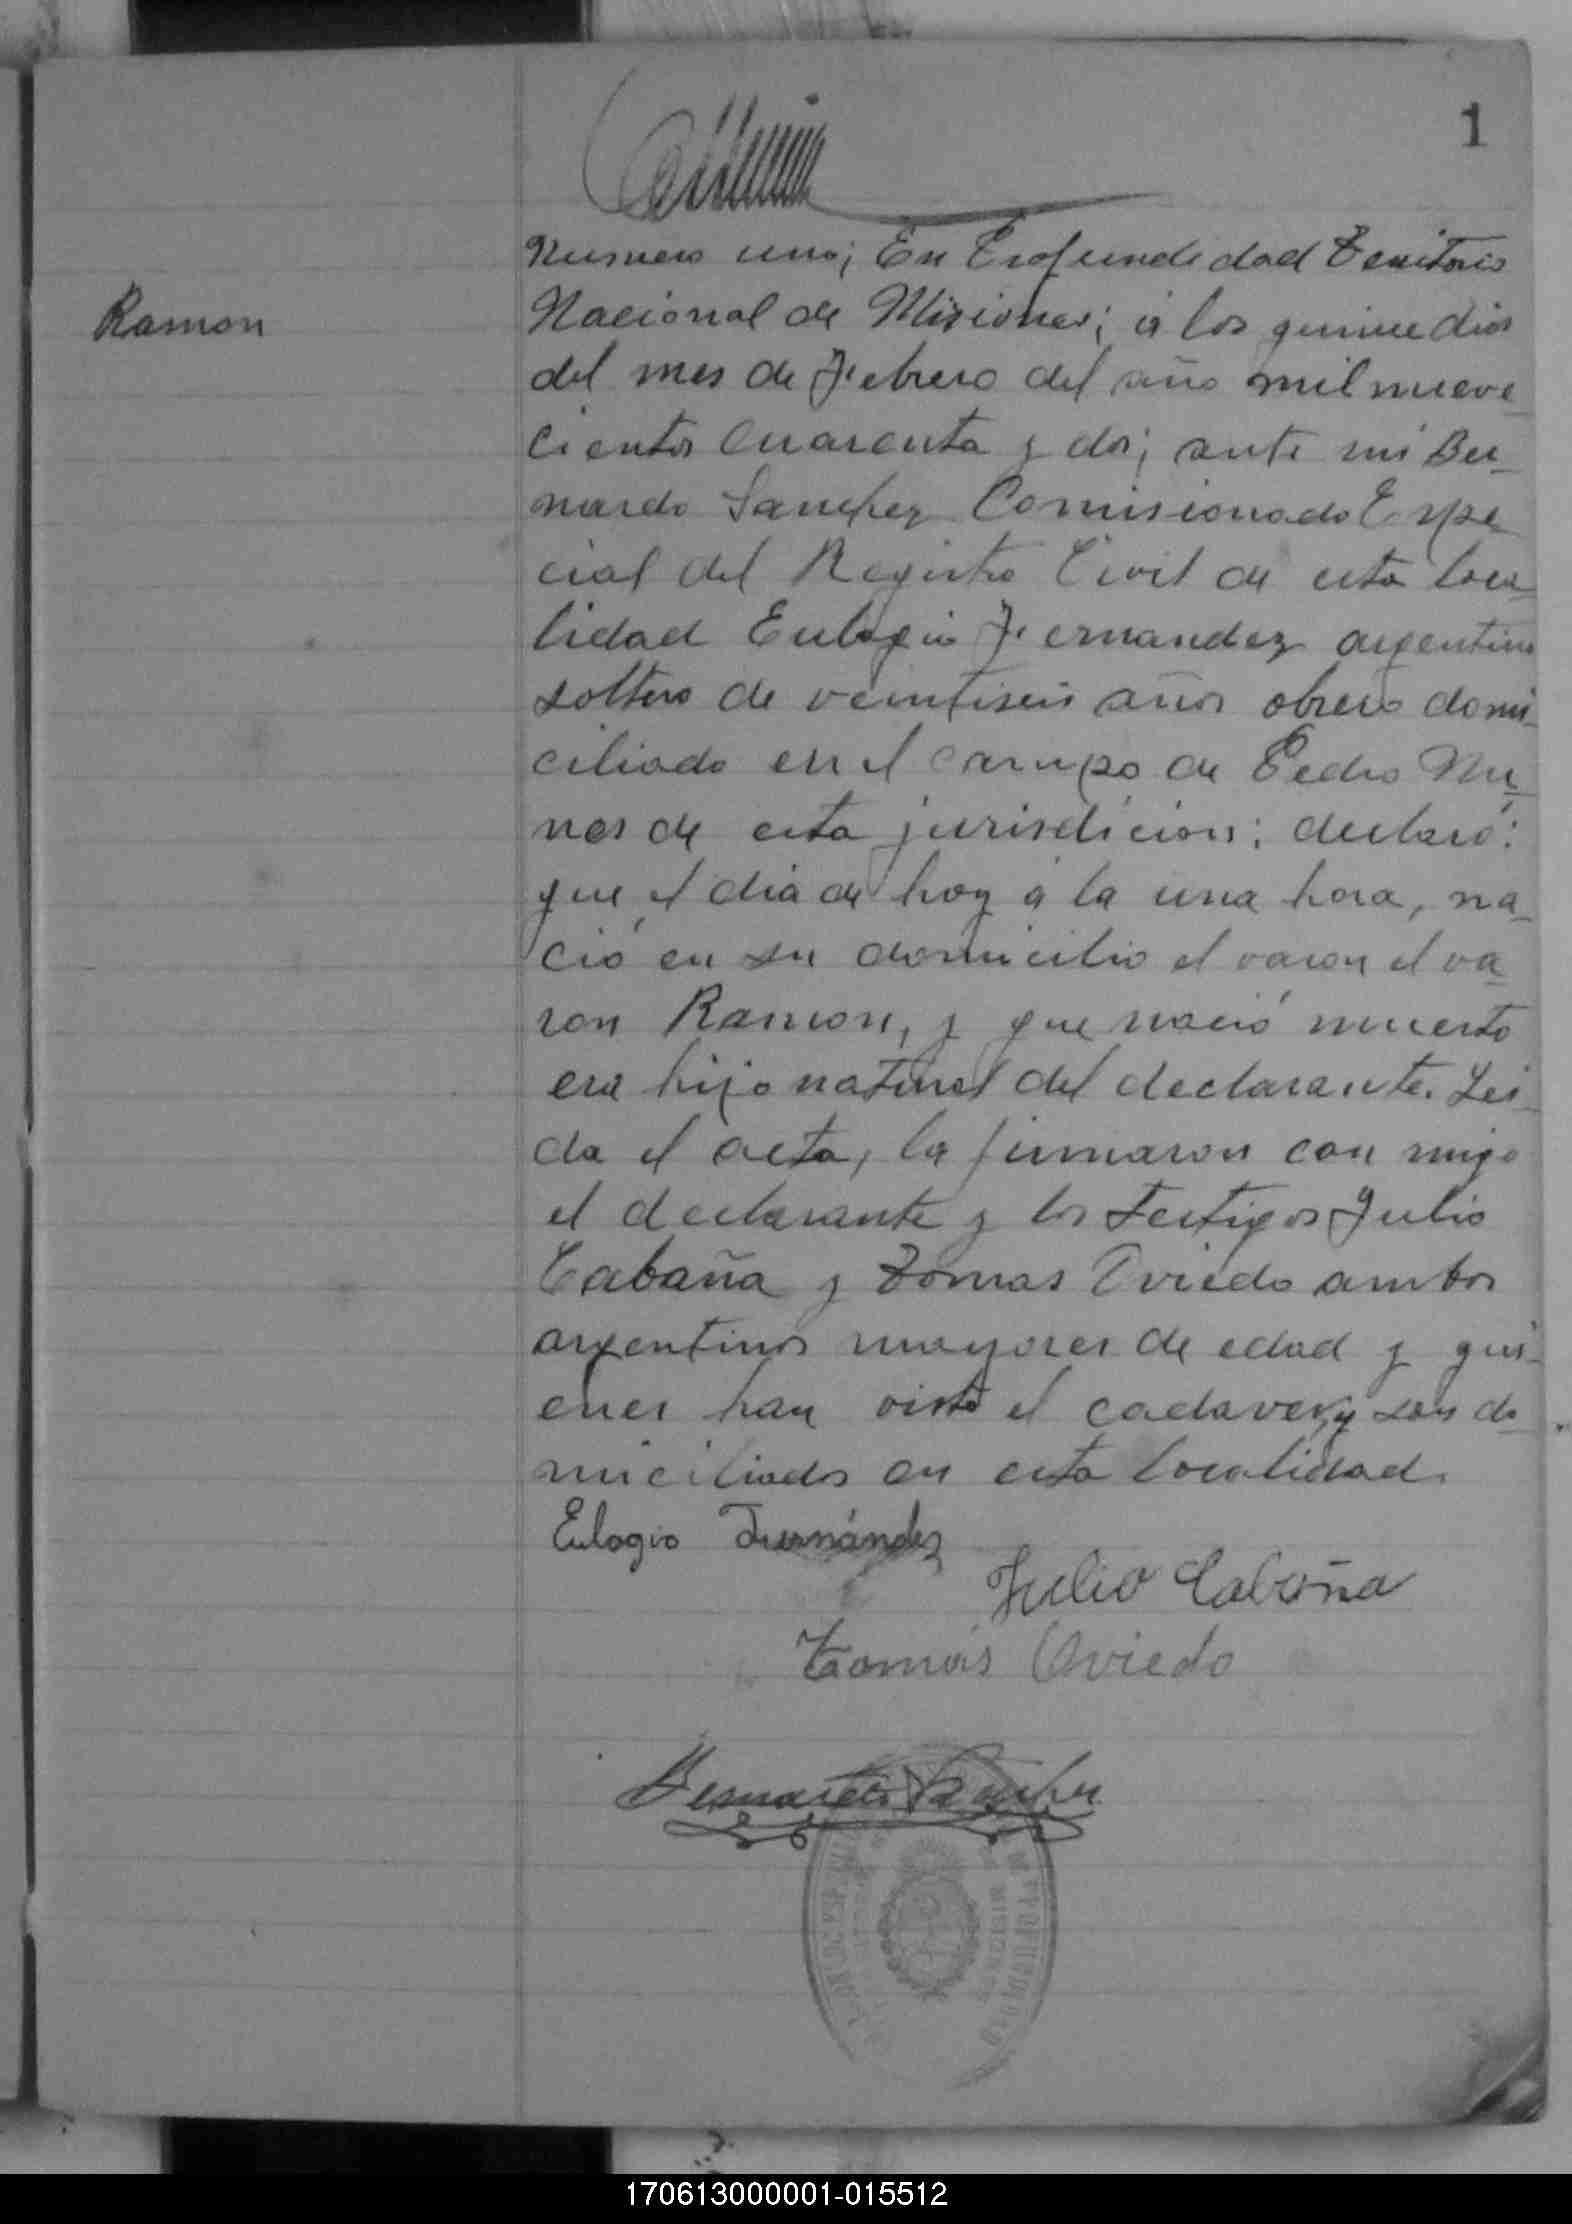 1
Ramon
Numero uno; En Profundidad Territorio
Nacional de Misiones; á los quince dias
del mes de Febrero del año mil nueve
cientos cuarenta y dos; ante mi Ber-
nardo Sanchez Comisionado Espe
cial del Registro Civil de esta loca-
lidad Eulogio Fernandez argentino
soltero de veintiseis años obrero domi-
ciliado en el campo de Pedro Nu-
nes de esta jurisdicion; declaró:
que el dia de hoy á la una hora, na-
ció en su domicilio el varon el va-
ron Ramon, y que nació muerto
era hijo natural del declarante. Lei-
da el acta, la firmaron con migo
el declarante y los testigos Julio
Cabaña y Tomas Oviedo ambos
argentinos mayores de edad y qui-
enes han visto el cadaver, y son do-
miciliados en esta localidad.
Eulogio Fernández
Julio Cabaña
Tomás Oviedo
Bernardo Sanchez
170613000001-015512